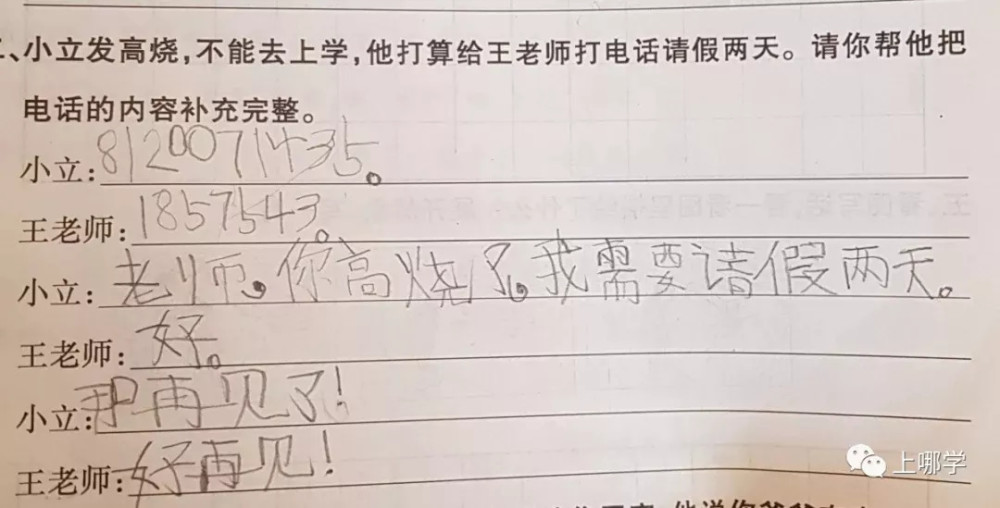 二、小立发高烧,不能去上学,他打算给王老师打电话请假两天。请你帮他把
电话的内容补充完整。
小立:8120071435。
王老师:1857543。
小立:老师。你高烧了。我需要请假两天。
王老师:好。
小立:那再见了!
王老师:好再见!
上哪学